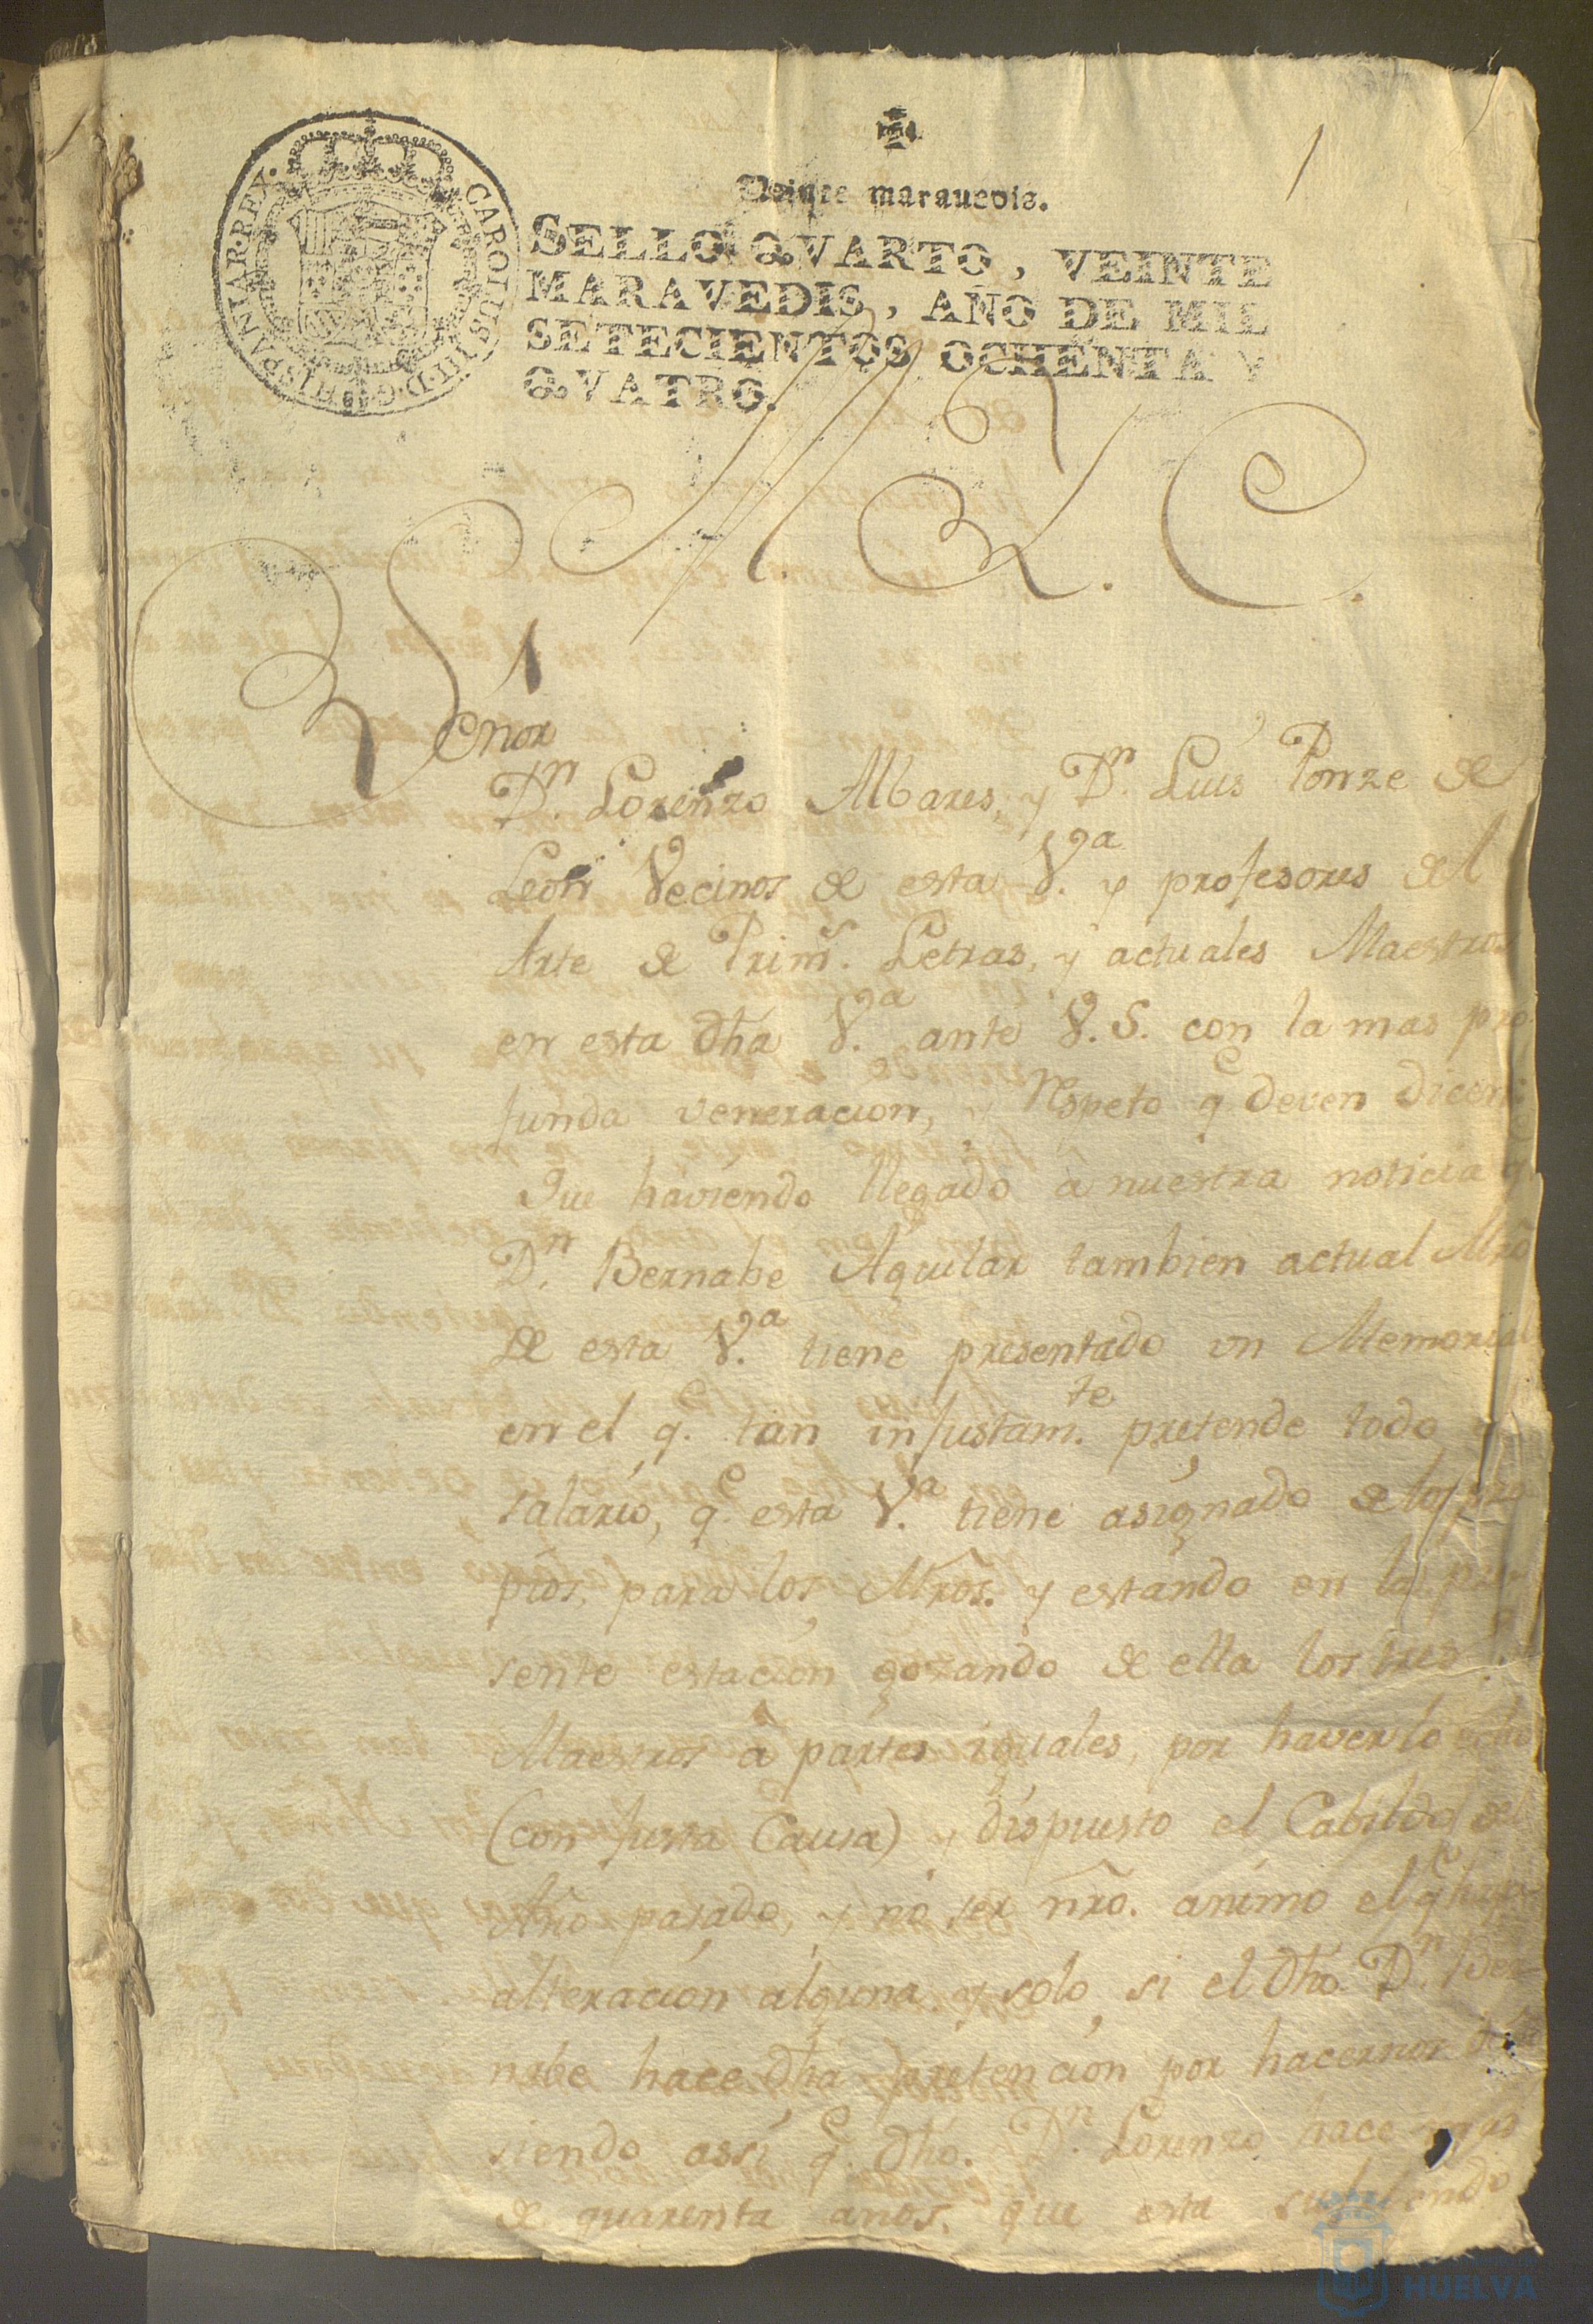 1
Veinte marauedis.
SELLO QVARTO, VEINTE
MARAVEDIS, AÑO DE MIL
SETECIENTOS OCHENTA Y
QVATRO.
CAROLUS III D. G. HISPANIAR. REX.
M. Y. L. C.
Señor
Dn. Lorenzo Albares, y Dn. Luis Ponze de
Leon Vecinos de esta Va. y profesores del
Arte de Prims. Letras, y actuales Maestros
en esta dha Va. ante V. S. con la mas pro
funda veneracion, y respeto qe. deven dicen:
Que haviendo llegado à nuestra noticia q.
Dn. Bernabe Aguilar tambien actual Mrõ
de esta Va. tiene presentado un Memorial
en el qe. tan injustamte. pretende todo
salario, qe. esta Va. tiene asignado de los pro
pios, para los Mrõs. y estando en la pre-
sente estacion gozando de ella los tres
Maestros à partes iguales, por haverlo
(con justa Causa) y dispuesto el Cabildo del
Año pasado, y no ser nrõ. animo el qe. haya
alteracion alguna, y solo si el dho. Dn. Ber-
nabe hace dha pretencion por hacernos
siendo assi qe. dho. Dn. Lorenzo hace
de quarenta años, que esta
HUELVA